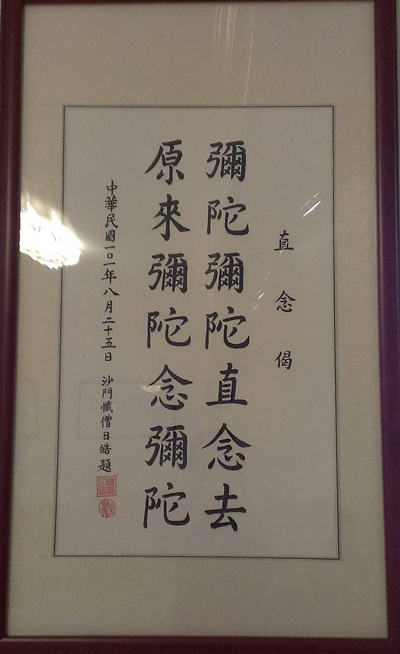 直念偈
彌陀彌陀直念去
原來彌陀念彌陀
中華民國一０一年八月二十五日 沙門懺僧日皓題